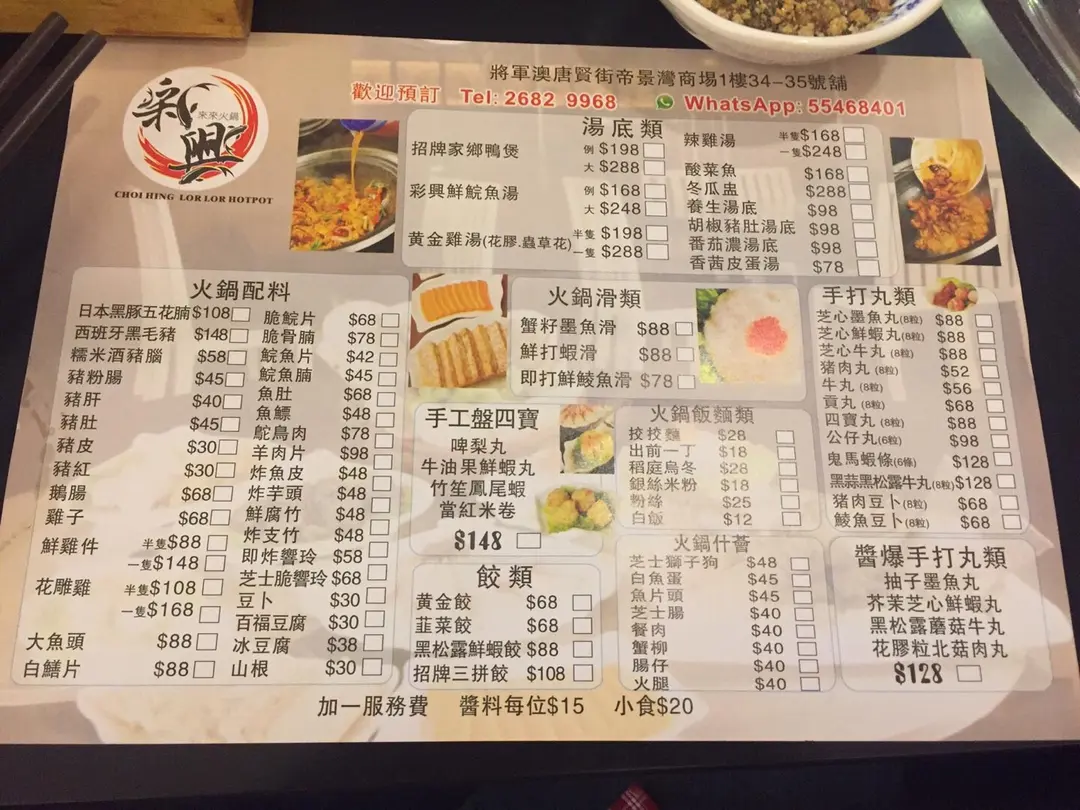 將軍澳唐賢街帝景灣商場1樓34-35號舖
歡迎預訂 Tel: 2682 9968 WhatsApp: 55468401
來來火鍋
CHOI HING LOR LOR HOTPOT
湯底類
招牌家鄉鴨煲 例 $198
大 $288
彩興鮮鯇魚湯 例 $168
大 $248
黄金雞湯(花膠.蟲草花) 半隻 $198
一隻 $288
辣雞湯 半隻 $168
一隻 $248
酸菜魚 $168
冬瓜盅 $288
養生湯底 $98
胡椒豬肚湯底 $98
番茄濃湯底 $98
香茜皮蛋湯 $78
火鍋配料
日本黑豚五花腩 $108
西班牙黑毛豬 $148
糯米酒豬腦 $58
豬粉腸 $45
豬肝 $40
豬肚 $45
豬皮 $30
豬紅 $30
鵝腸 $68
雞子 $68
鮮雞件 半隻 $88
一隻 $148
花雕雞 半隻 $108
一隻 $168
大魚頭 $88
白鱔片 $88
脆鯇片 $68
脆骨腩 $78
鯇魚片 $42
鯇魚腩 $45
魚肚 $68
魚鰾 $48
鴕鳥肉 $78
羊肉片 $98
炸魚皮 $48
炸芋頭 $48
鮮腐竹 $48
炸支竹 $48
即炸響玲 $58
芝士脆響玲 $68
豆卜 $30
百福豆腐 $30
冰豆腐 $38
山根 $30
火鍋滑類
蟹籽墨魚滑 $88
鮮打蝦滑 $88
即打鮮鯪魚滑 $78
手工盤四寶
啤梨丸
牛油果鮮蝦丸
竹笙鳳尾蝦
當紅米卷
$148
餃類
黄金餃 $68
韮菜餃 $68
黑松露鮮蝦餃 $88
招牌三拼餃 $108
火鍋飯麵類
挍挍麵 $28
出前一丁 $18
稻庭烏冬 $28
銀絲米粉 $18
粉絲 $25
白飯 $12
火鍋什薈
芝士獅子狗 $48
白魚蛋 $45
魚片頭 $45
芝士腸 $40
餐肉 $40
蟹柳 $40
腸仔 $40
火腿 $40
手打丸類
芝心墨魚丸(8粒) $88
芝心鮮蝦丸(8粒) $88
芝心牛丸(8粒) $88
猪肉丸(8粒) $52
牛丸(8粒) $56
貢丸(8粒) $68
四寶丸(8粒) $88
公仔丸(6粒) $98
鬼馬蝦條(6條) $128
黑蒜黑松露牛丸(8粒) $128
猪肉豆卜(8粒) $68
鯪魚豆卜(8粒) $68
醬爆手打丸類
抽子墨魚丸
芥茉芝心鮮蝦丸
黑松露蘑菇牛丸
花膠粒北菇肉丸
$128
加一服務費 醬料每位$15 小食$20